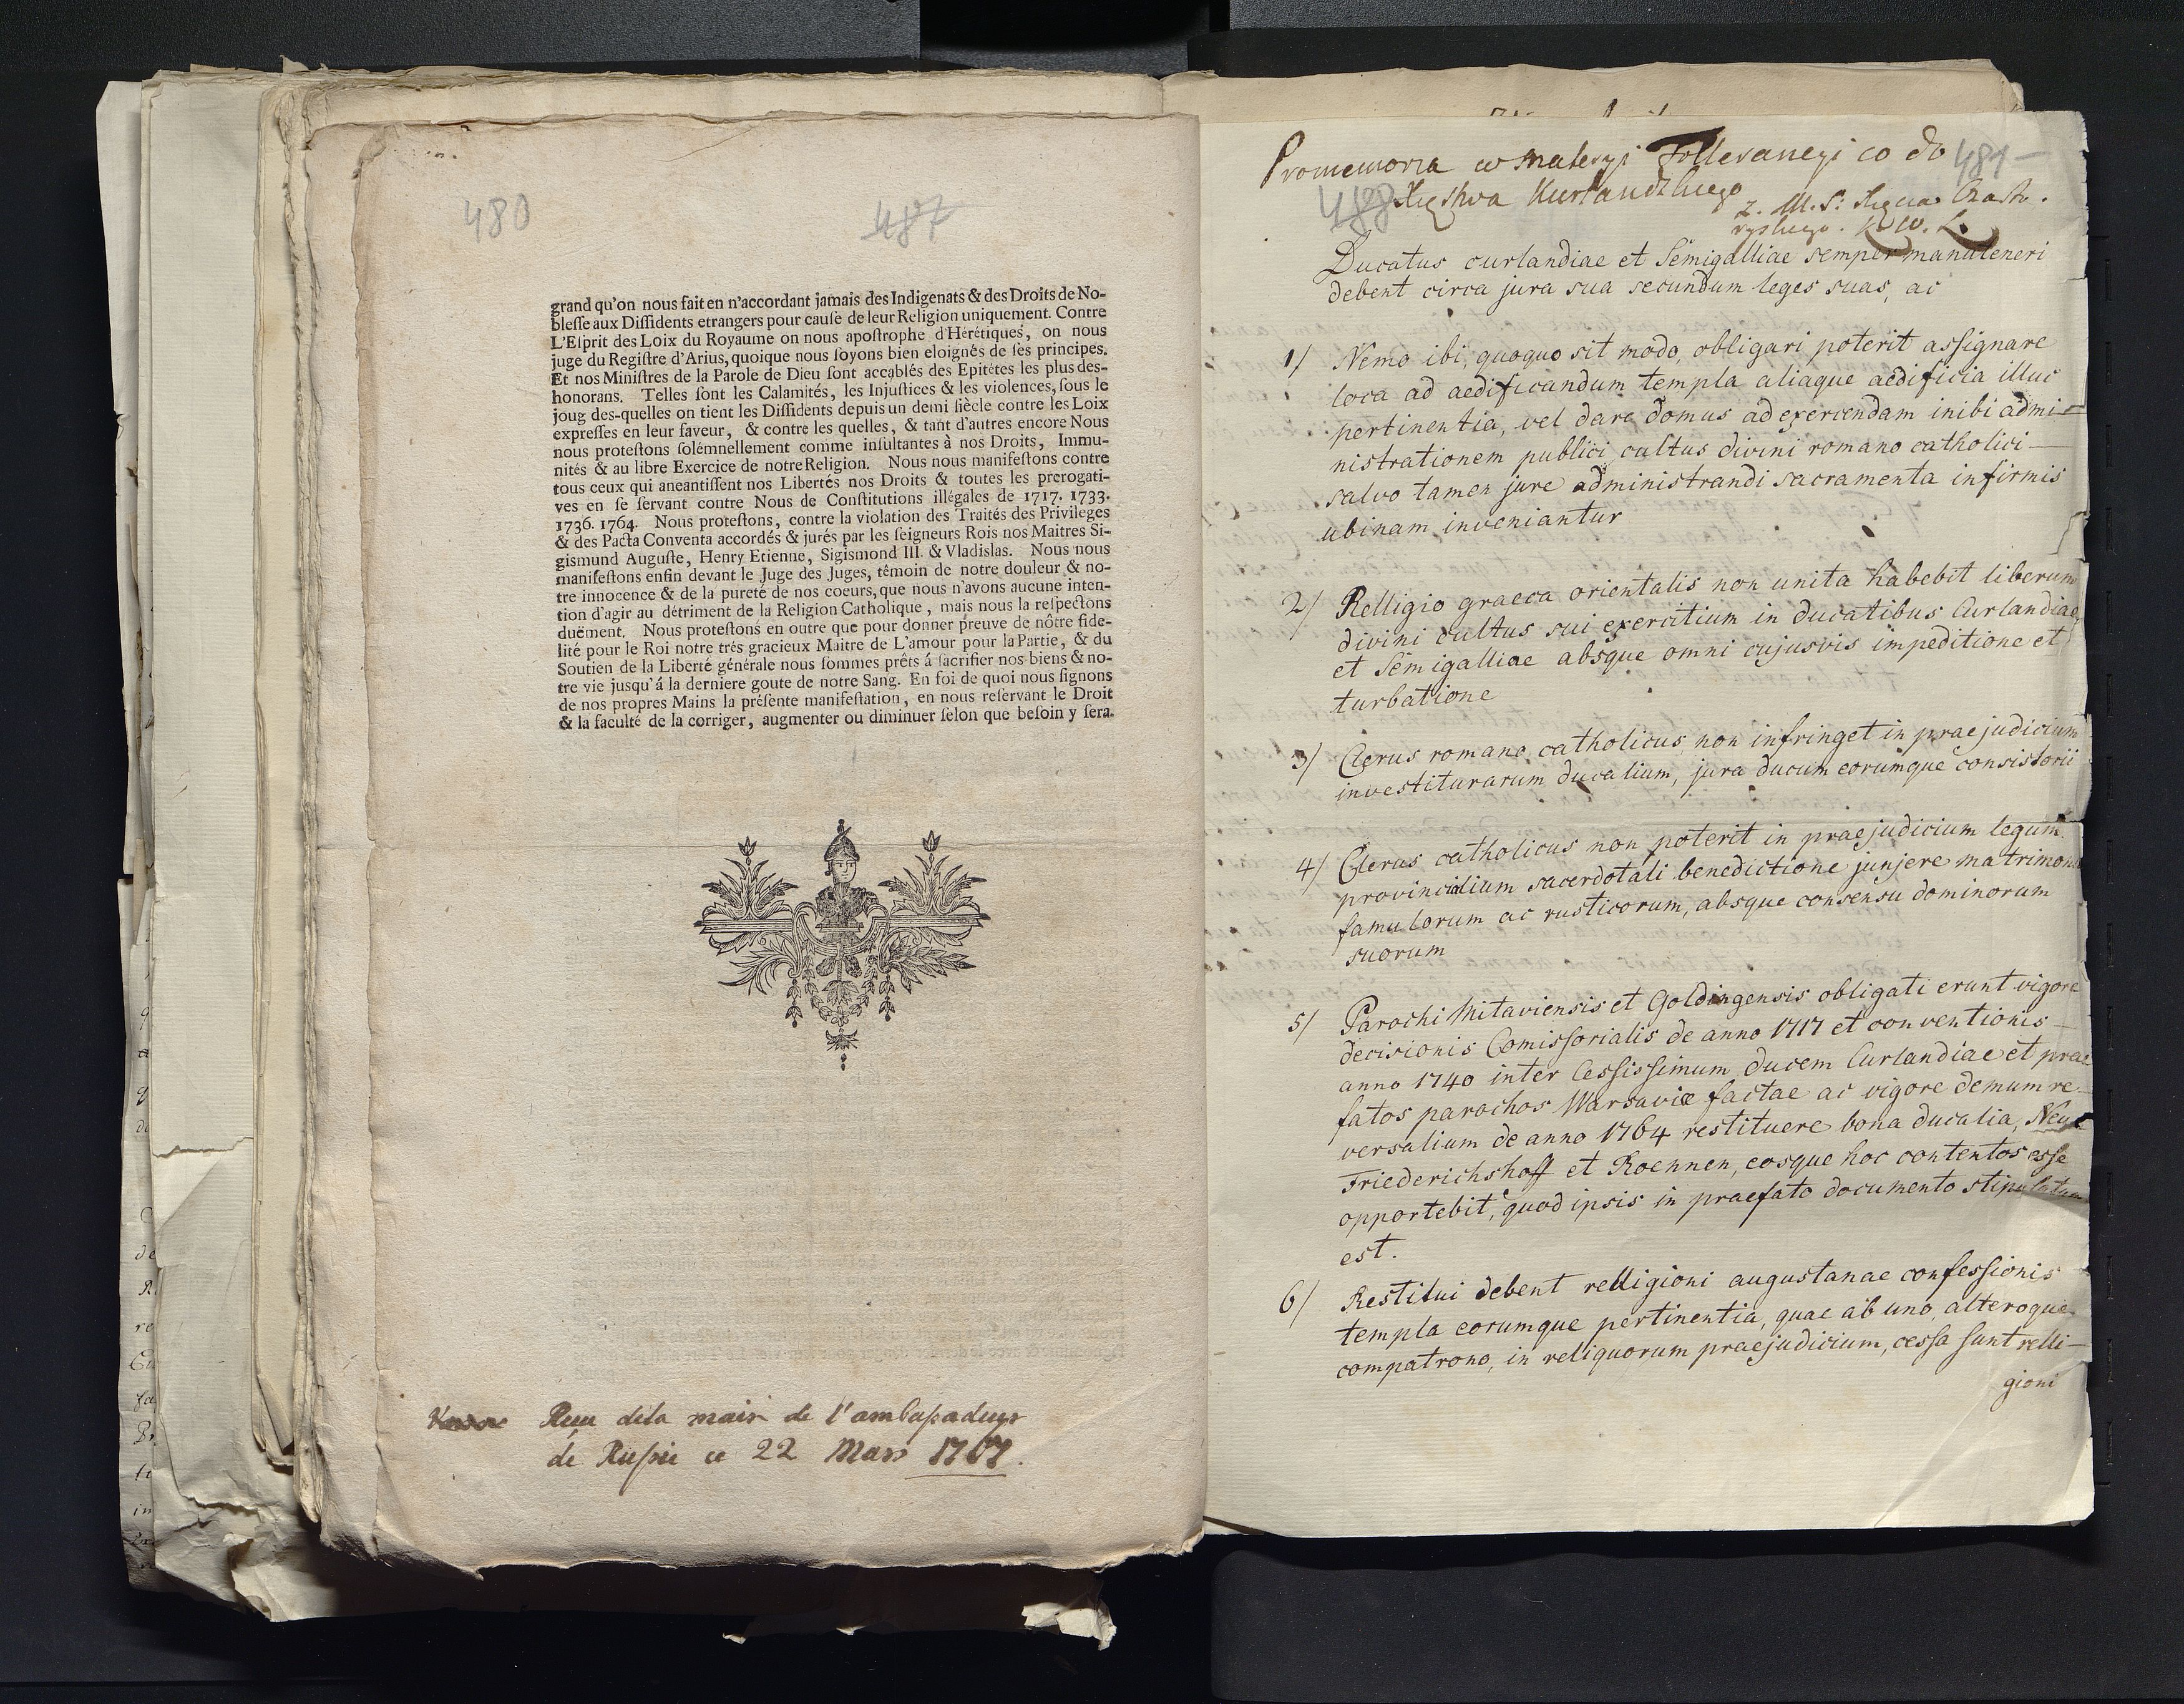 480
487
grand qu'on nous fait en n'accordant jamais des Indigenats & des Droits de No-
blesse aux Dissidents etrangers pour cause de leur Religion uniquement. Contre
L'Esprit des Loix du Royaume on nous apostrophe d'Hérétiques, on nous
juge du Registre d'Arius, quoique nous soyons bien eloignés de ses principes.
Et nos Ministres de la Parole de Dieu sont accablés des Epitétes les plus des-
honorans. Telles sont les Calamités, les Injustices & les violences, sous le
joug des-quelles on tient les Dissidents depuis un demi siècle contre les Loix
expresses en leur faveur, & contre les quelles, & tant d'autres encore Nous
nous protestons solémnellement comme insultantes à nos Droits, Immu-
nités & au libre Exercice de notre Religion. Nous nous manifestons contre
tous ceux qui aneantissent nos Libertés nos Droits & toutes les prerogati-
ves en se servant contre Nous de Constitutions illégales de 1717. 1733.
1736. 1764. Nous protestons, contre la violation des Traités des Privileges
& des Pacta Conventa accordés & jurés par les seigneurs Rois nos Maitres Si-
gismund Auguste, Henry Etienne, Sigismond III. & Vladislas. Nous nous
manifestons enfin devant le Juge des Juges, témoin de notre douleur & no-
tre innocence & de la pureté de nos coeurs, que nous n'avons aucune inten-
tion d'agir au détriment de la Religion Catholique, mais nous la respectons
duëment. Nous protestons en outre que pour donner preuve de nôtre fide-
lité pour le Roi notre trés gracieux Maitre de L'amour pour la Partie, & du
Soutien de la Liberté générale nous sommes prêts á sacrifier nos biens & no-
tre vie jusqu'á la derniere goute de notre Sang. En foi de quoi nous signons
de nos propres Mains la présente manifestation, en nous reservant le Droit
& la faculté de la corriger, augmenter ou diminuer selon que besoin y sera.
Reçu dela main de l'ambassadeur
de Russie ce 22 Mars 1767.
Promemoria w materyi Tollerancyi co do 481
488 Xięstwa Kurlandzkiego
z. M. S: Xięcia Czarto.
ryskiego. K W. L.
Ducatus curlandiae et Semigalliae semper manuteneri
debent circa jura sua secundum leges suas, ac
1/ Nemo ibi, quoquo sit modo, obligari poterit assignare
loca ad aedificandum templa aliaque aedificia illuc
pertinentia, vel dare domus ad exercendam inibi admi-
nistrationem publici cultus divini romano catholici
salvo tamen jure administrandi sacramenta infirmis
ubinam inveniantur
2/ Relligio graeca orientalis non unita habebit liberum
divini cultus sui exercitium in ducatibus Curlandiae
et Semigalliae absque omni cujusvis impeditione et
turbatione
3/ Clerus romano catholicus non infringet in praejudicium
investiturarum ducalium, jura ducum eorumque consistorii
4/ Clerus catholicus non poterit in praejudicium legum
provincialium sacerdotali benedictione junjere matrimonia
famulorum ac rusticorum, absque consensu dominorum
suorum
5/ Parochi Mitaviensis et Goldingensis obligati erunt vigore
decisionis Comissorialis de anno 1717 et conventionis
anno 1740 inter Cessissimum ducem Curlandiae et prae-
fatos parochos Warsaviae factae ac vigore demum re-
versalium de anno 1764 restituere bona ducalia,
Friederichshoff et Roennen, eosque hoc contentos esse
opportebit, quod ipsis in praefato documento stipulatum
est.
6/ Restitui debent relligioni augustanae confessionis
templa eorumque pertinentia, quae ab uno, alteroque
compatrono, in reliquorum praejudicium, cessa sunt relli-
gioni